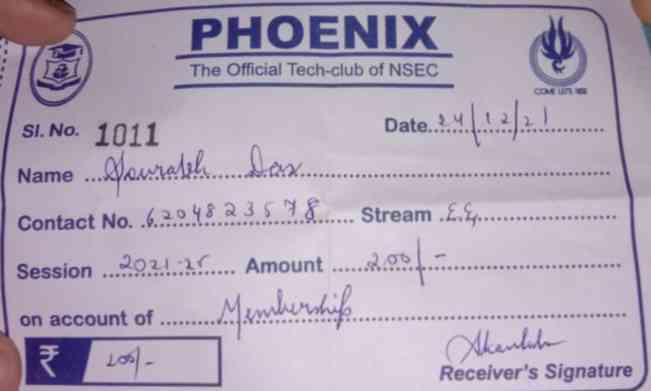 PHOENIX
The Official Tech-club of NSEC
COME LETS RISE
Sl. No. 1011 Date 24/12/21
Name Sourabh Das
Contact No. 6204823578 Stream E.E.
Session 2021-25 Amount 200/-
on account of Membership
₹ 200/-
Receiver's Signature